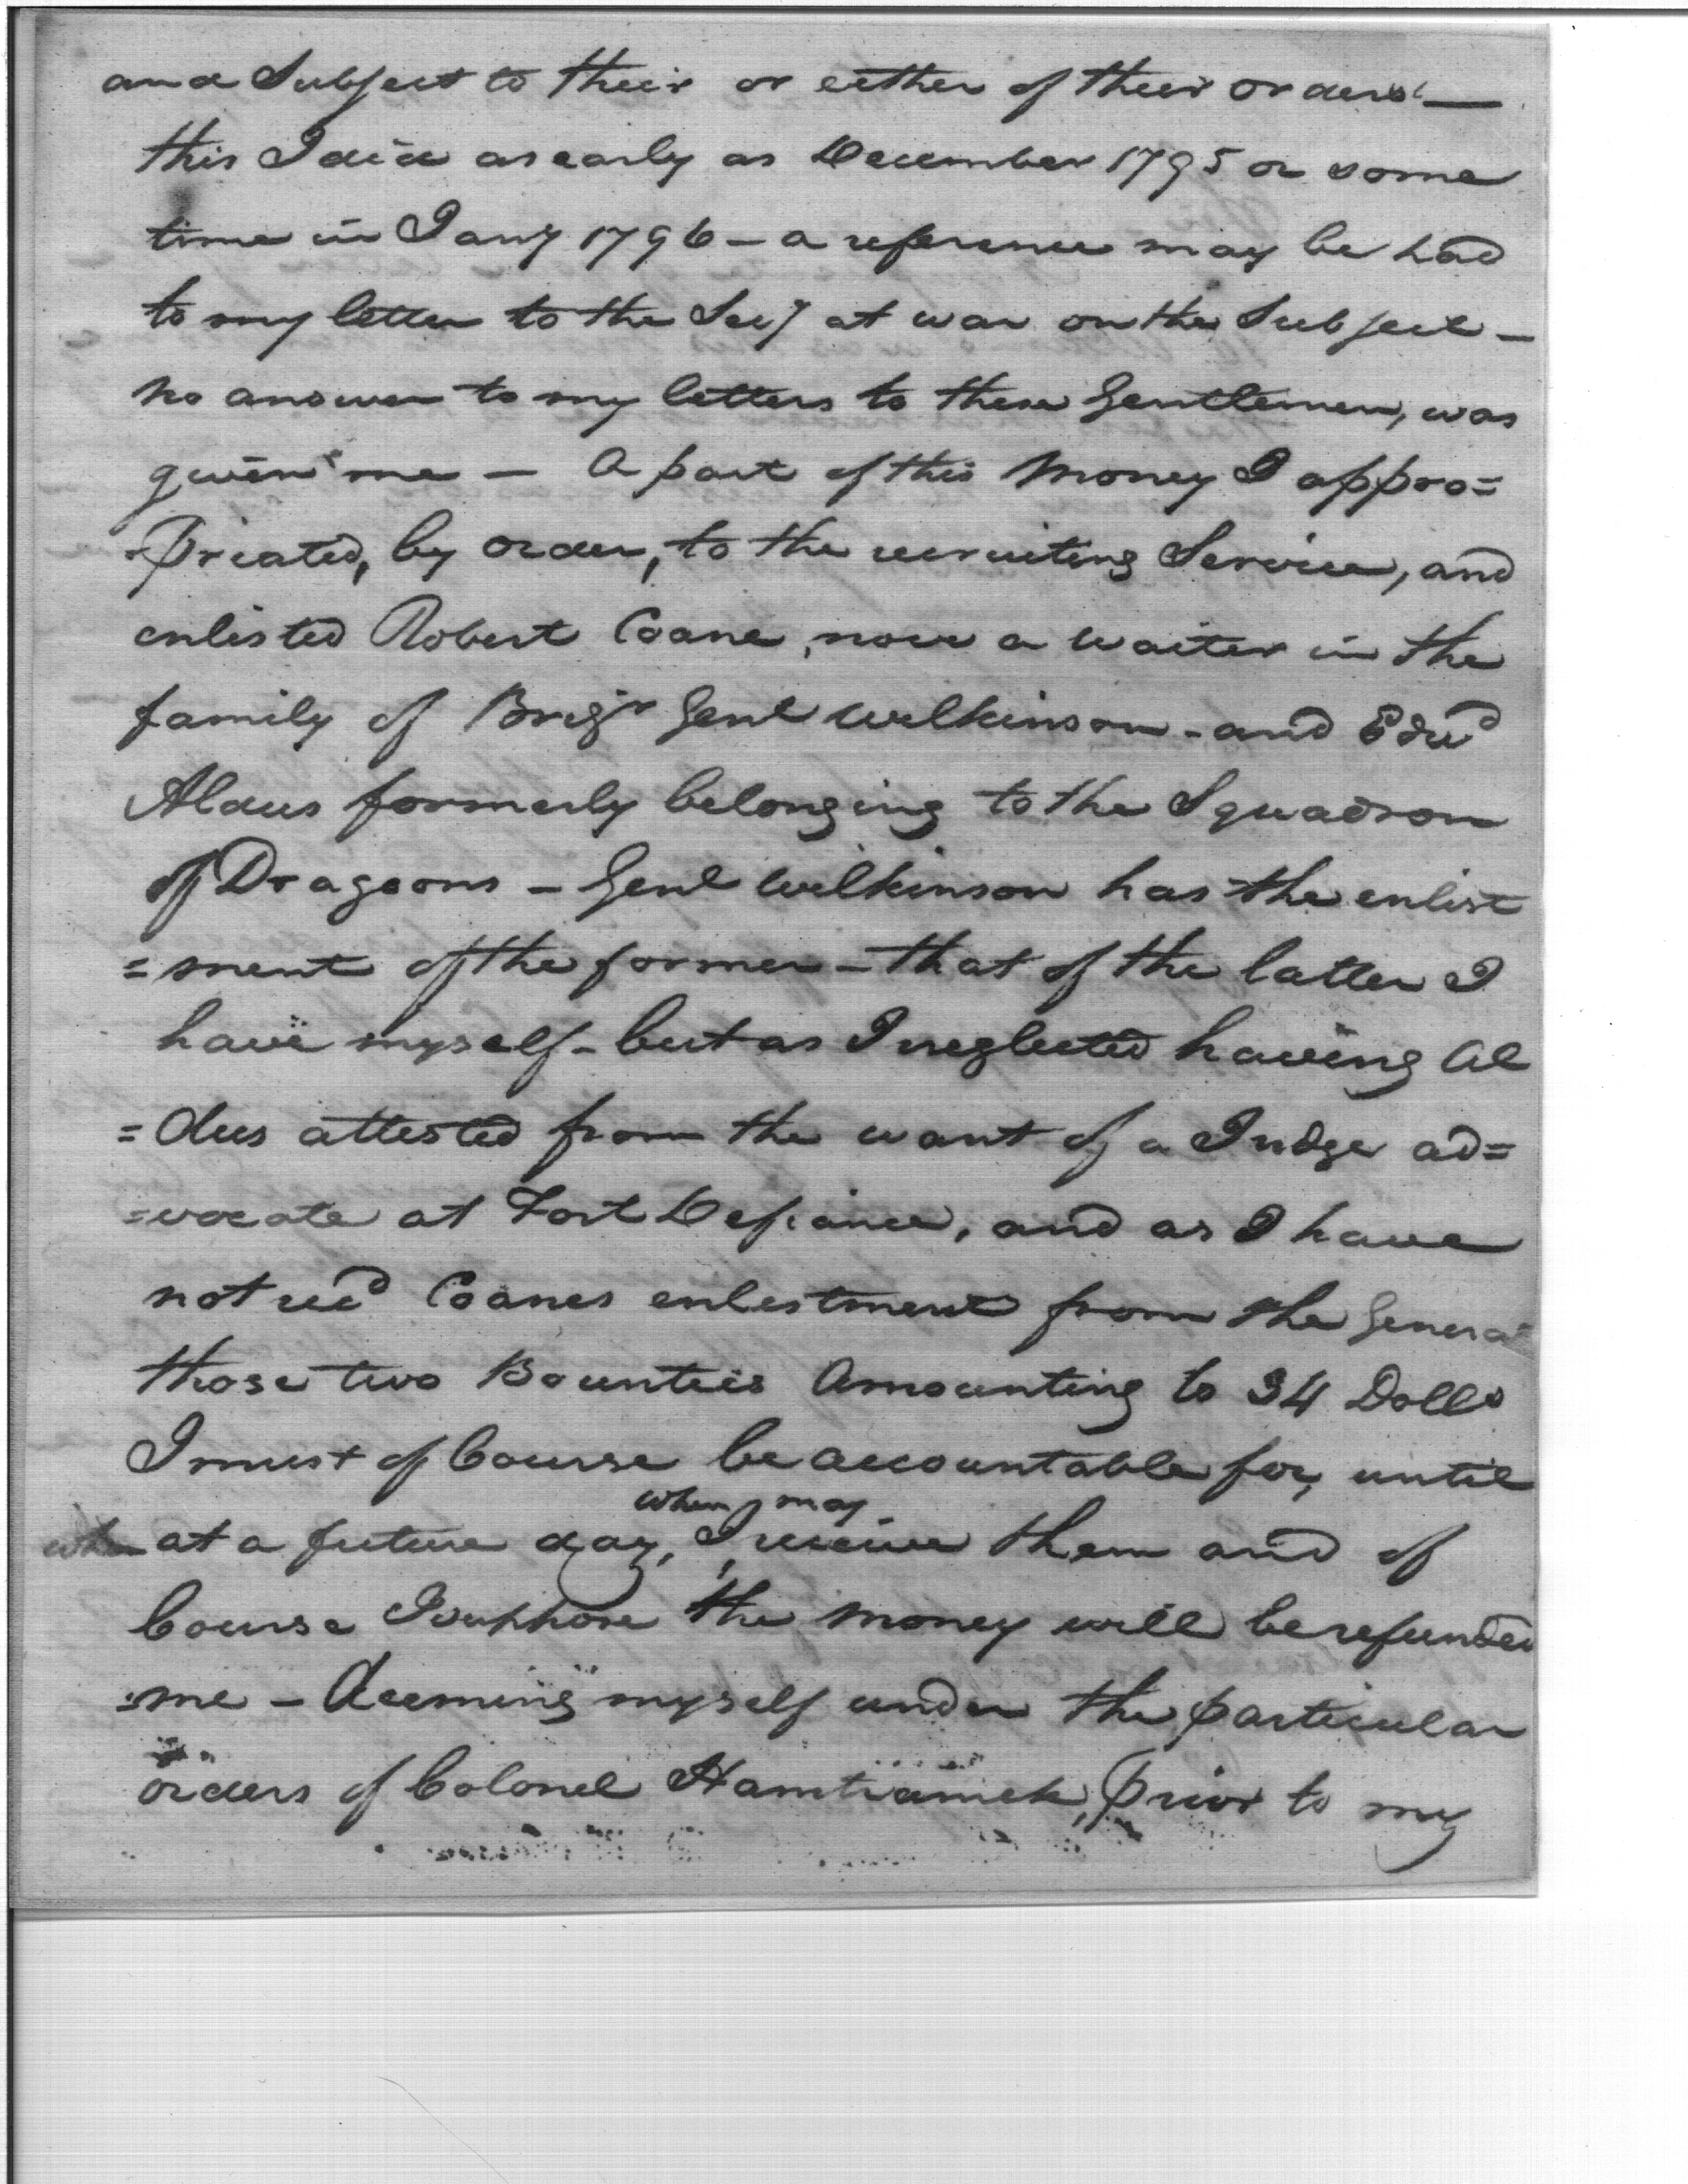 and Subject to their or either of their orders —
this I did as early as December 1795 or some
time in Jany 1796 – a reference may be had
to my letter to the Secy at war on the Subject –
no answer to my letters to these Gentlemen, was
given me – A part of this Money I appro=
=priated, by order, to the recruiting Service, and
enlisted Robert Coane, now a waiter in the
family of Brigr Genl Wilkinson – and Edwd
Aldus formerly belonging to the Squadron
of Dragoons – Genl Wilkinson has the enlist
=ment of the former – that of the latter I
have myself – but as I neglected having Al
=dus attested from the want of a Judge ad=
=vocate at Fort Defiance, and as I have
not recd Coanes enlistment from the General
those two Bounties Amounting to 34 Dolls
I must of Course be accountable for, until
when may
when at a future day, I receive them and of
Course I suppose the money will be refunded
me – Deeming myself under the particular
orders of Colonel Hamtramck, prior to my